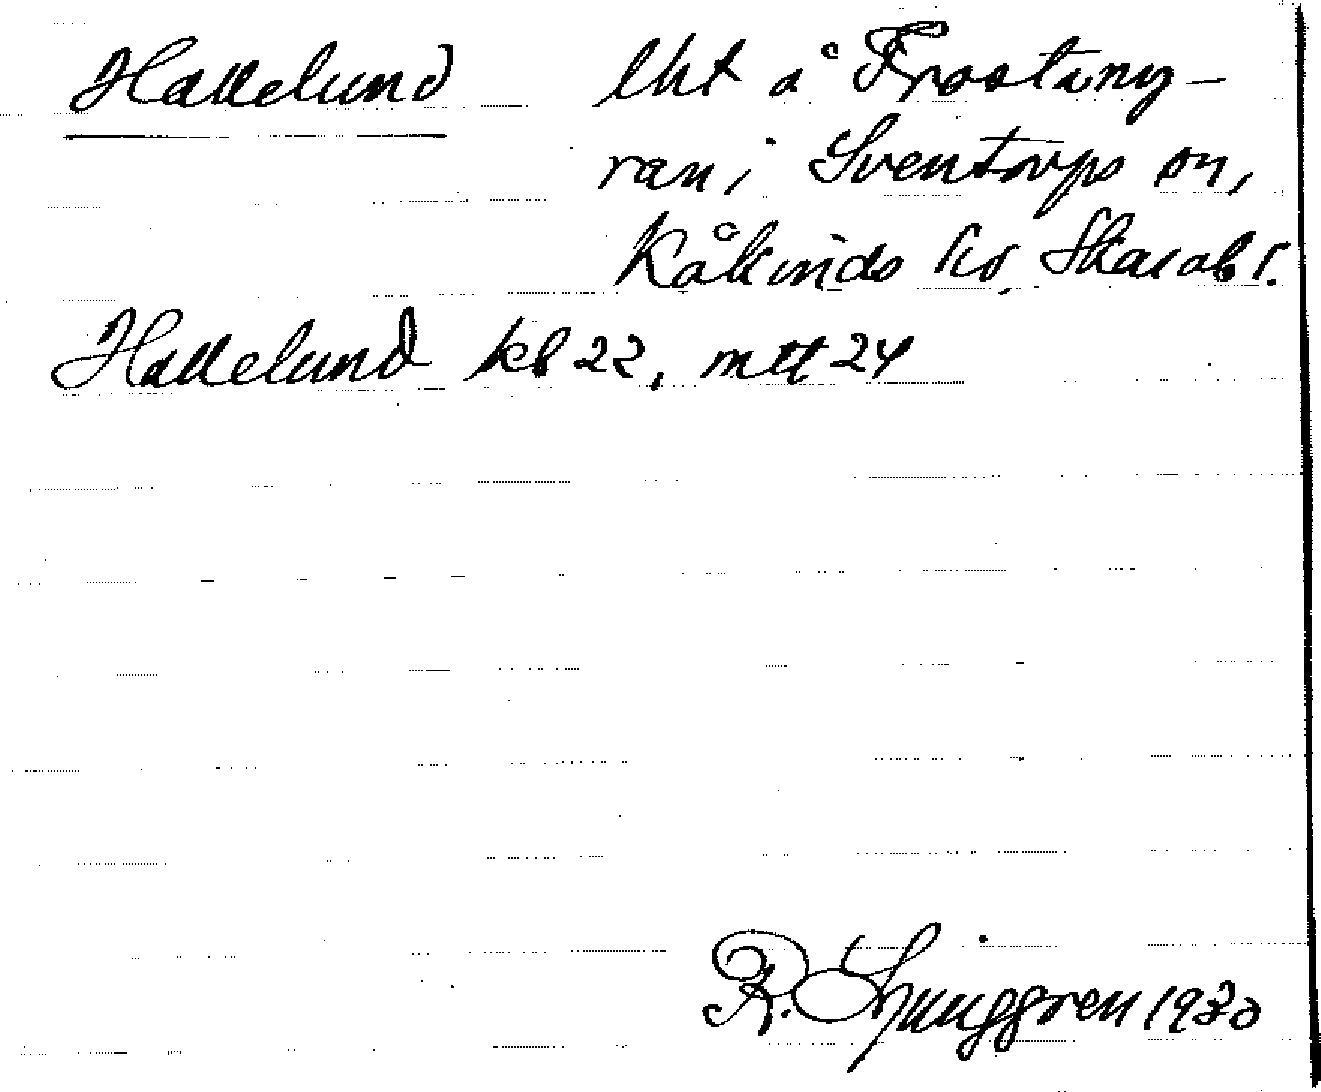 Hallelund lht å Frostamy-
ran i Sventorps sn,
Kåkinds hd, Skarab l.
Hallelund kb 22, mtt 24
R. Ljunggren 1930